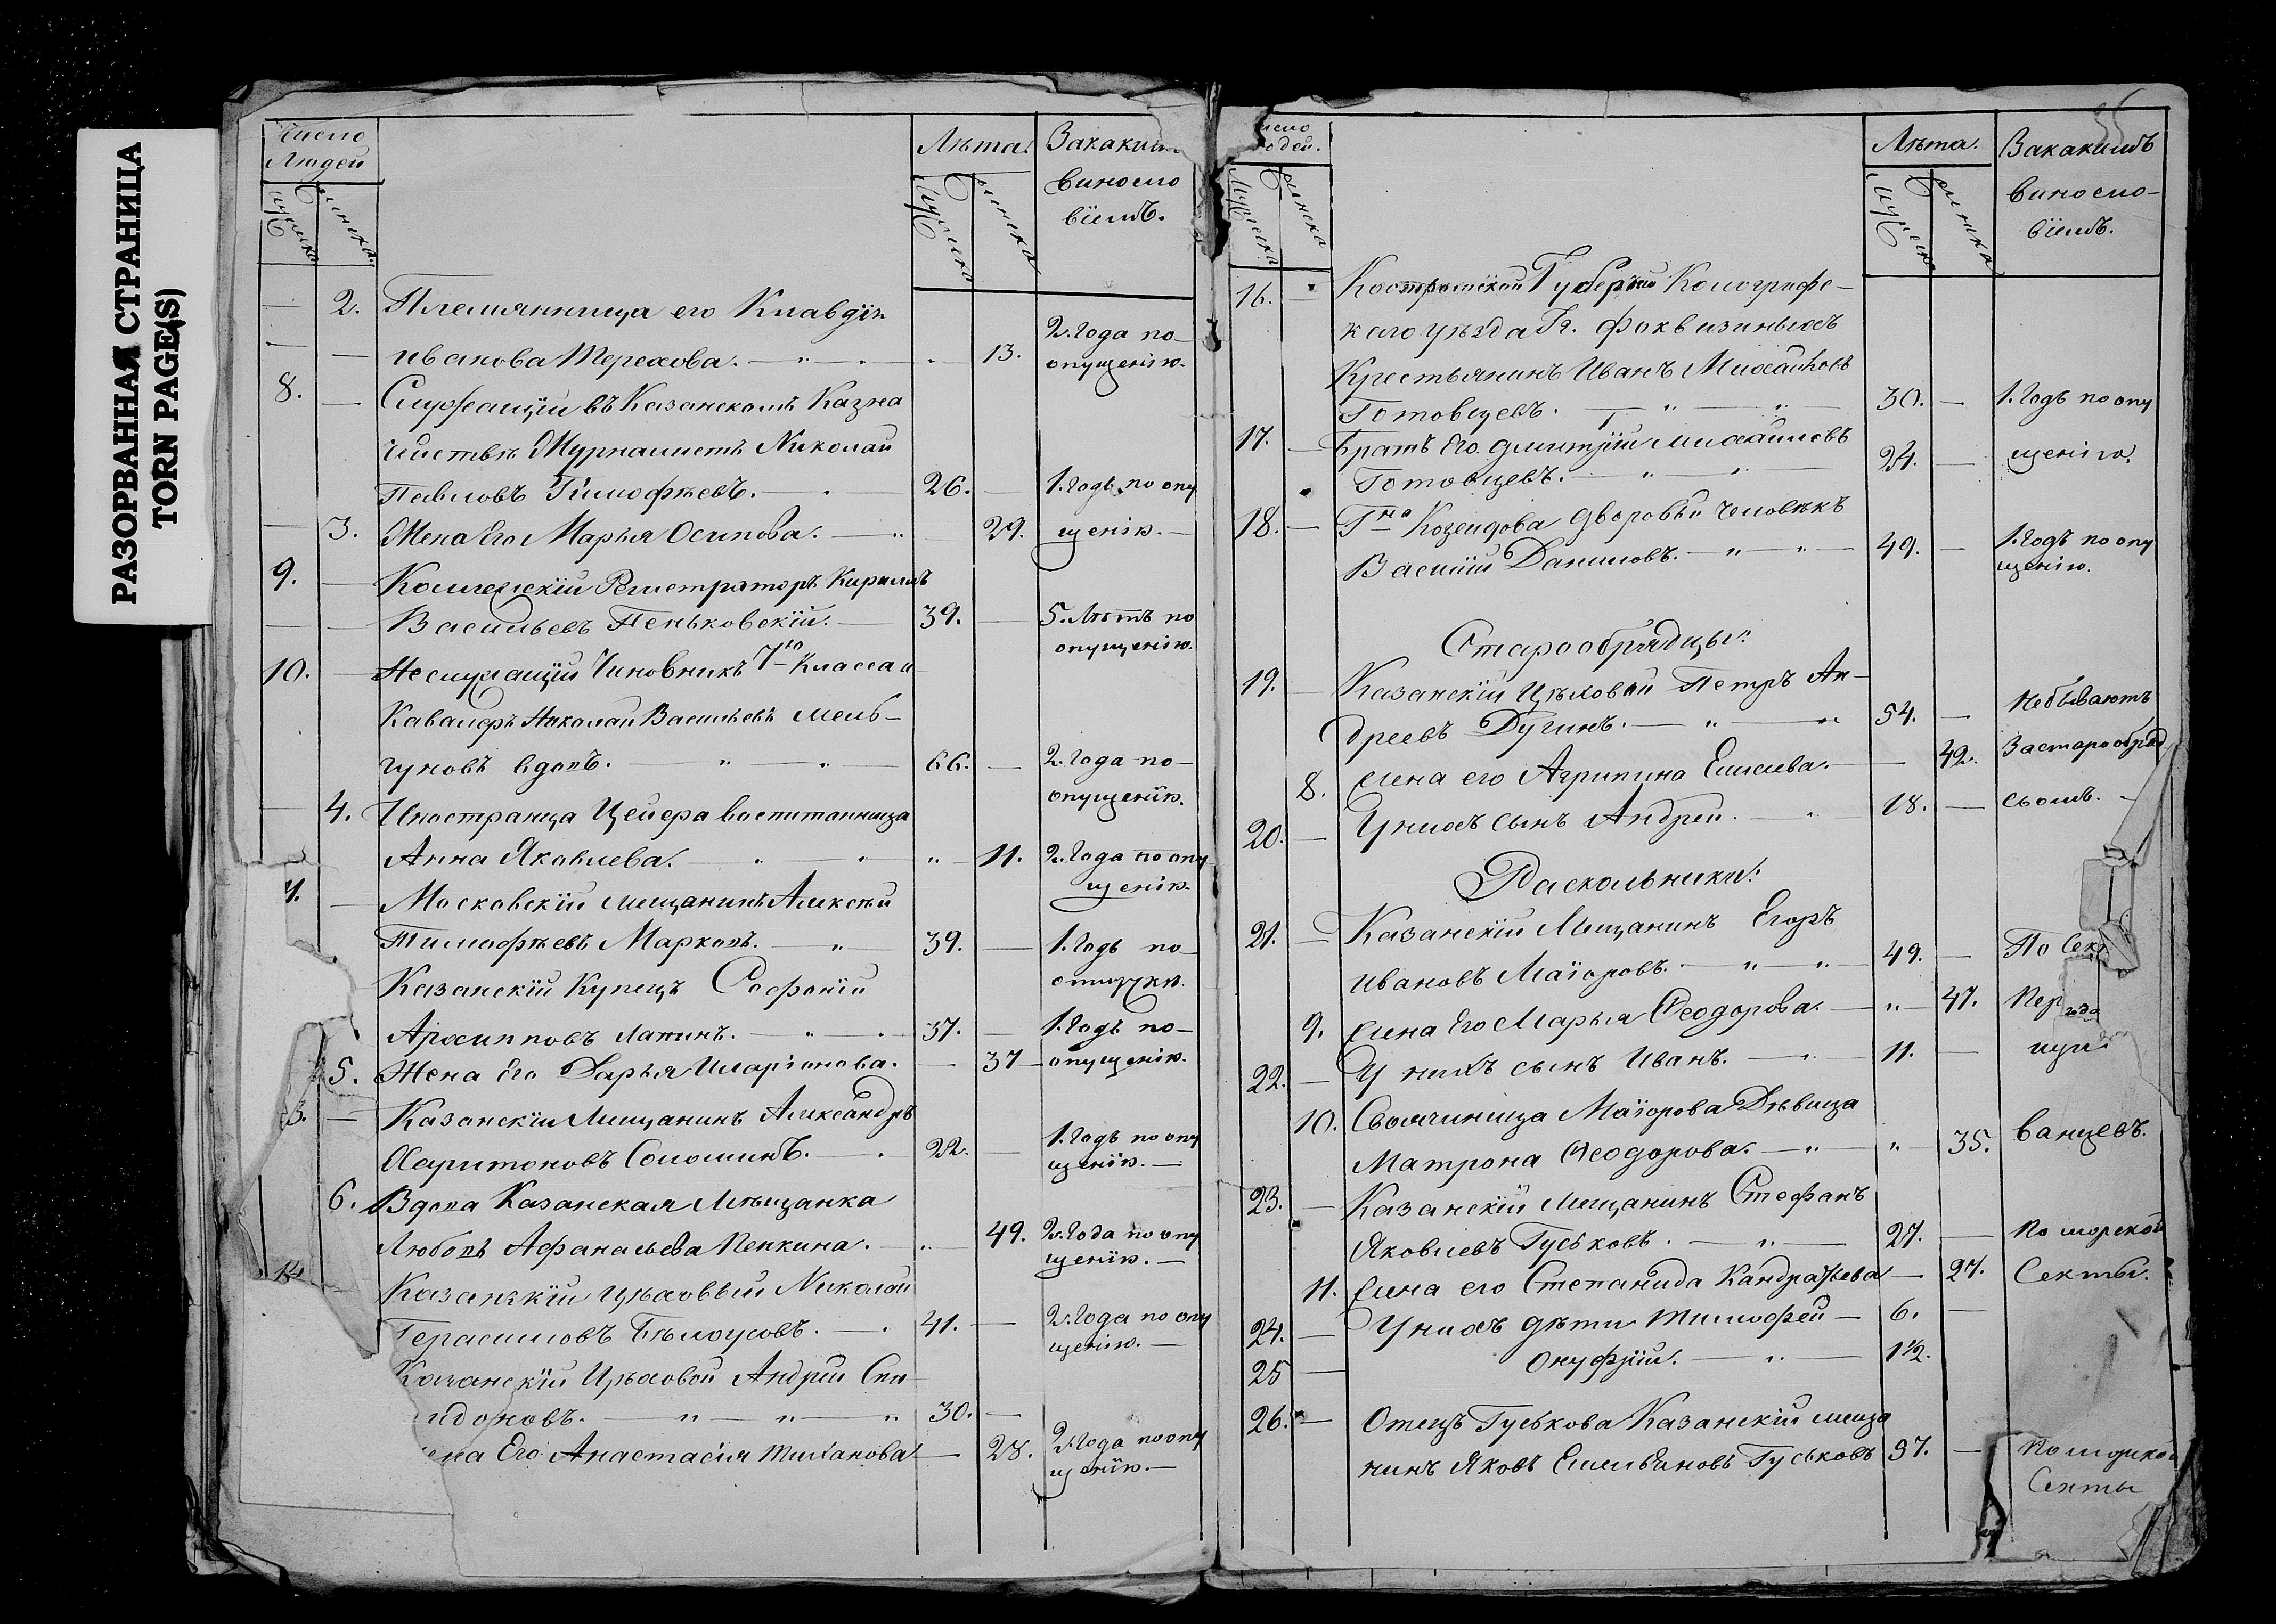 РАЗОРВАННАЯ СТРАНИЦА
TORN PAGE(S)
Число
Людей
Мужеска
Женска.
Лѣта.
Мужеска
Женска
Закаким
виносло
віемъ.
2. Племянница его Клавдія
Иванова Терехова. 13. 2. Года по
опущенію.
8. Служащій въ Казанскомъ Казна
чействѣ Журналистъ Николай
Павловъ Тимофѣевъ. 26. 1. Годъ по опу
3. Жена Его Марья Осипова. 29. щенію.
9. Коллежскій Регистраторъ Кирилъ
Васильевъ Пеньковскій. 39. 5. Лѣтъ по
опущенію.
10. Неслужащій Чиновникъ 7го Класса и
Кавалеръ Николай Васильевъ Мель-
гуновъ вдовъ. 66. 2. Года по-
опущенію.
4. Иностранца Цейера воспитанница
Анна Яковлева. 11. 2. Года по опу
щенію.
Московскій мещанинъ Алексѣй
Тимофѣевъ Марковъ. 39. 1. Годъ по-
отлучки.
Казанскій Купецъ Софоній
Архипповъ Лапинъ. 37. 1. Годъ по-
5. Жена Его Дарья Иларіонова. 37 опущенію.
3. Казанскій Мещанинъ Александръ
Харитоновъ Соломинъ. 22. 1. Годъ по опу
щенію.
6. Вдова Казанская Мѣщанка
Любовь Афанасьева Пенкина. 49. 2. Года по опу
щенію.
14 Казанскій Цѣховый Николай
Герасимовъ Бѣлоусовъ. 41. 2. Года по опу
щенію.
Казанскій Цѣховой Андрей Спи
идоновъ. 30.
ена Его Анастасія 28. 2. Года по опу
щенію.
исло
юдей.
Мужеска
Женска
Лѣта.
Мужеск
Женска
Закакимъ
виносло-
віемъ.
16. Костромской Губерніи Кологривс-
каго уѣзда Гг. Фонвизиныхъ
Крестьянинъ Иванъ Михайловъ
Готовцевъ. 30. 1. Годъ по опу
17. Братъ Его Дмитрій Михайловъ
Готовцевъ. 24. щенію.
18. Гна Дворовый Человѣкъ
Василій Даниловъ. 49. 1. Годъ по опу
щенію.
Старообрядцы.
19. Казанскій Цѣховой Петръ Ан-
дреевъ Дугинъ. 54. Небываютъ
8. Жена его Агрипина Елисеева. 42. Застарообряд
20. У нихъ сынъ Андрей. 18. сьомъ.
Раскольники.
21. Казанскій Мещанинъ Егоръ
Ивановъ Маіоровъ. 49. По Сек
9. Жена Его Марья Феодорова. 47. Пер
22. У нихъ сынъ Иванъ. 11.
10. Своячиница Маіорова Дѣвица
Матрона Феодорова. 35. ванцевъ.
23. Казанскій Мещанинъ Стефанъ
Яковлевъ Гуськовъ. 27. Поморской
11. Жена его Степанида Кандратьева 27. Секты.
24. У нихъ дѣти Тимофей 6.
25 Онуфрій. 1½.
26. Отецъ Гуськова Казанскій меща
нинъ Яковъ Емельяновъ Гуськовъ 57. Поморской
Секты